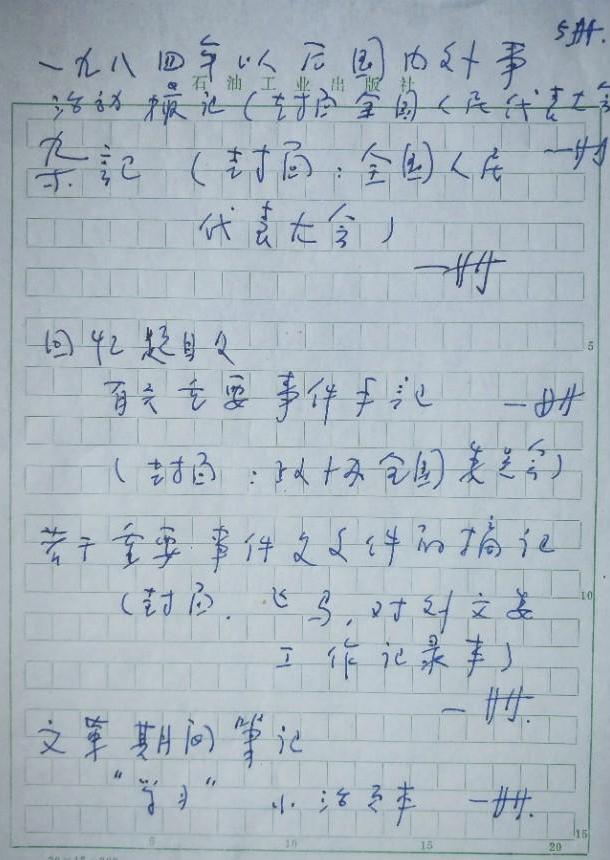 5册.
一九八四年以后国内外事
石油工业出版社
活动摘记(封面全国人民代表大会
记 (封面:全国人民 一册
代表大会)
一册
回忆题目及
有关重要事件手记 一册
(封面:政协全国委员会)
若干重要事件及文件的摘记
(封面. 飞马,对外文委
工作记录本)
一册.
文革期间笔记
"学习" 小活页本 一册.
5
10
15
5 10 15 20